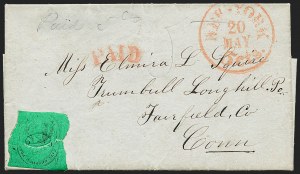 Paid
NEW-YORK
20
MAY
PAID
Miss Elmira L Squire
Trumbull Long hill Po.
Fairfield, Co
Conn